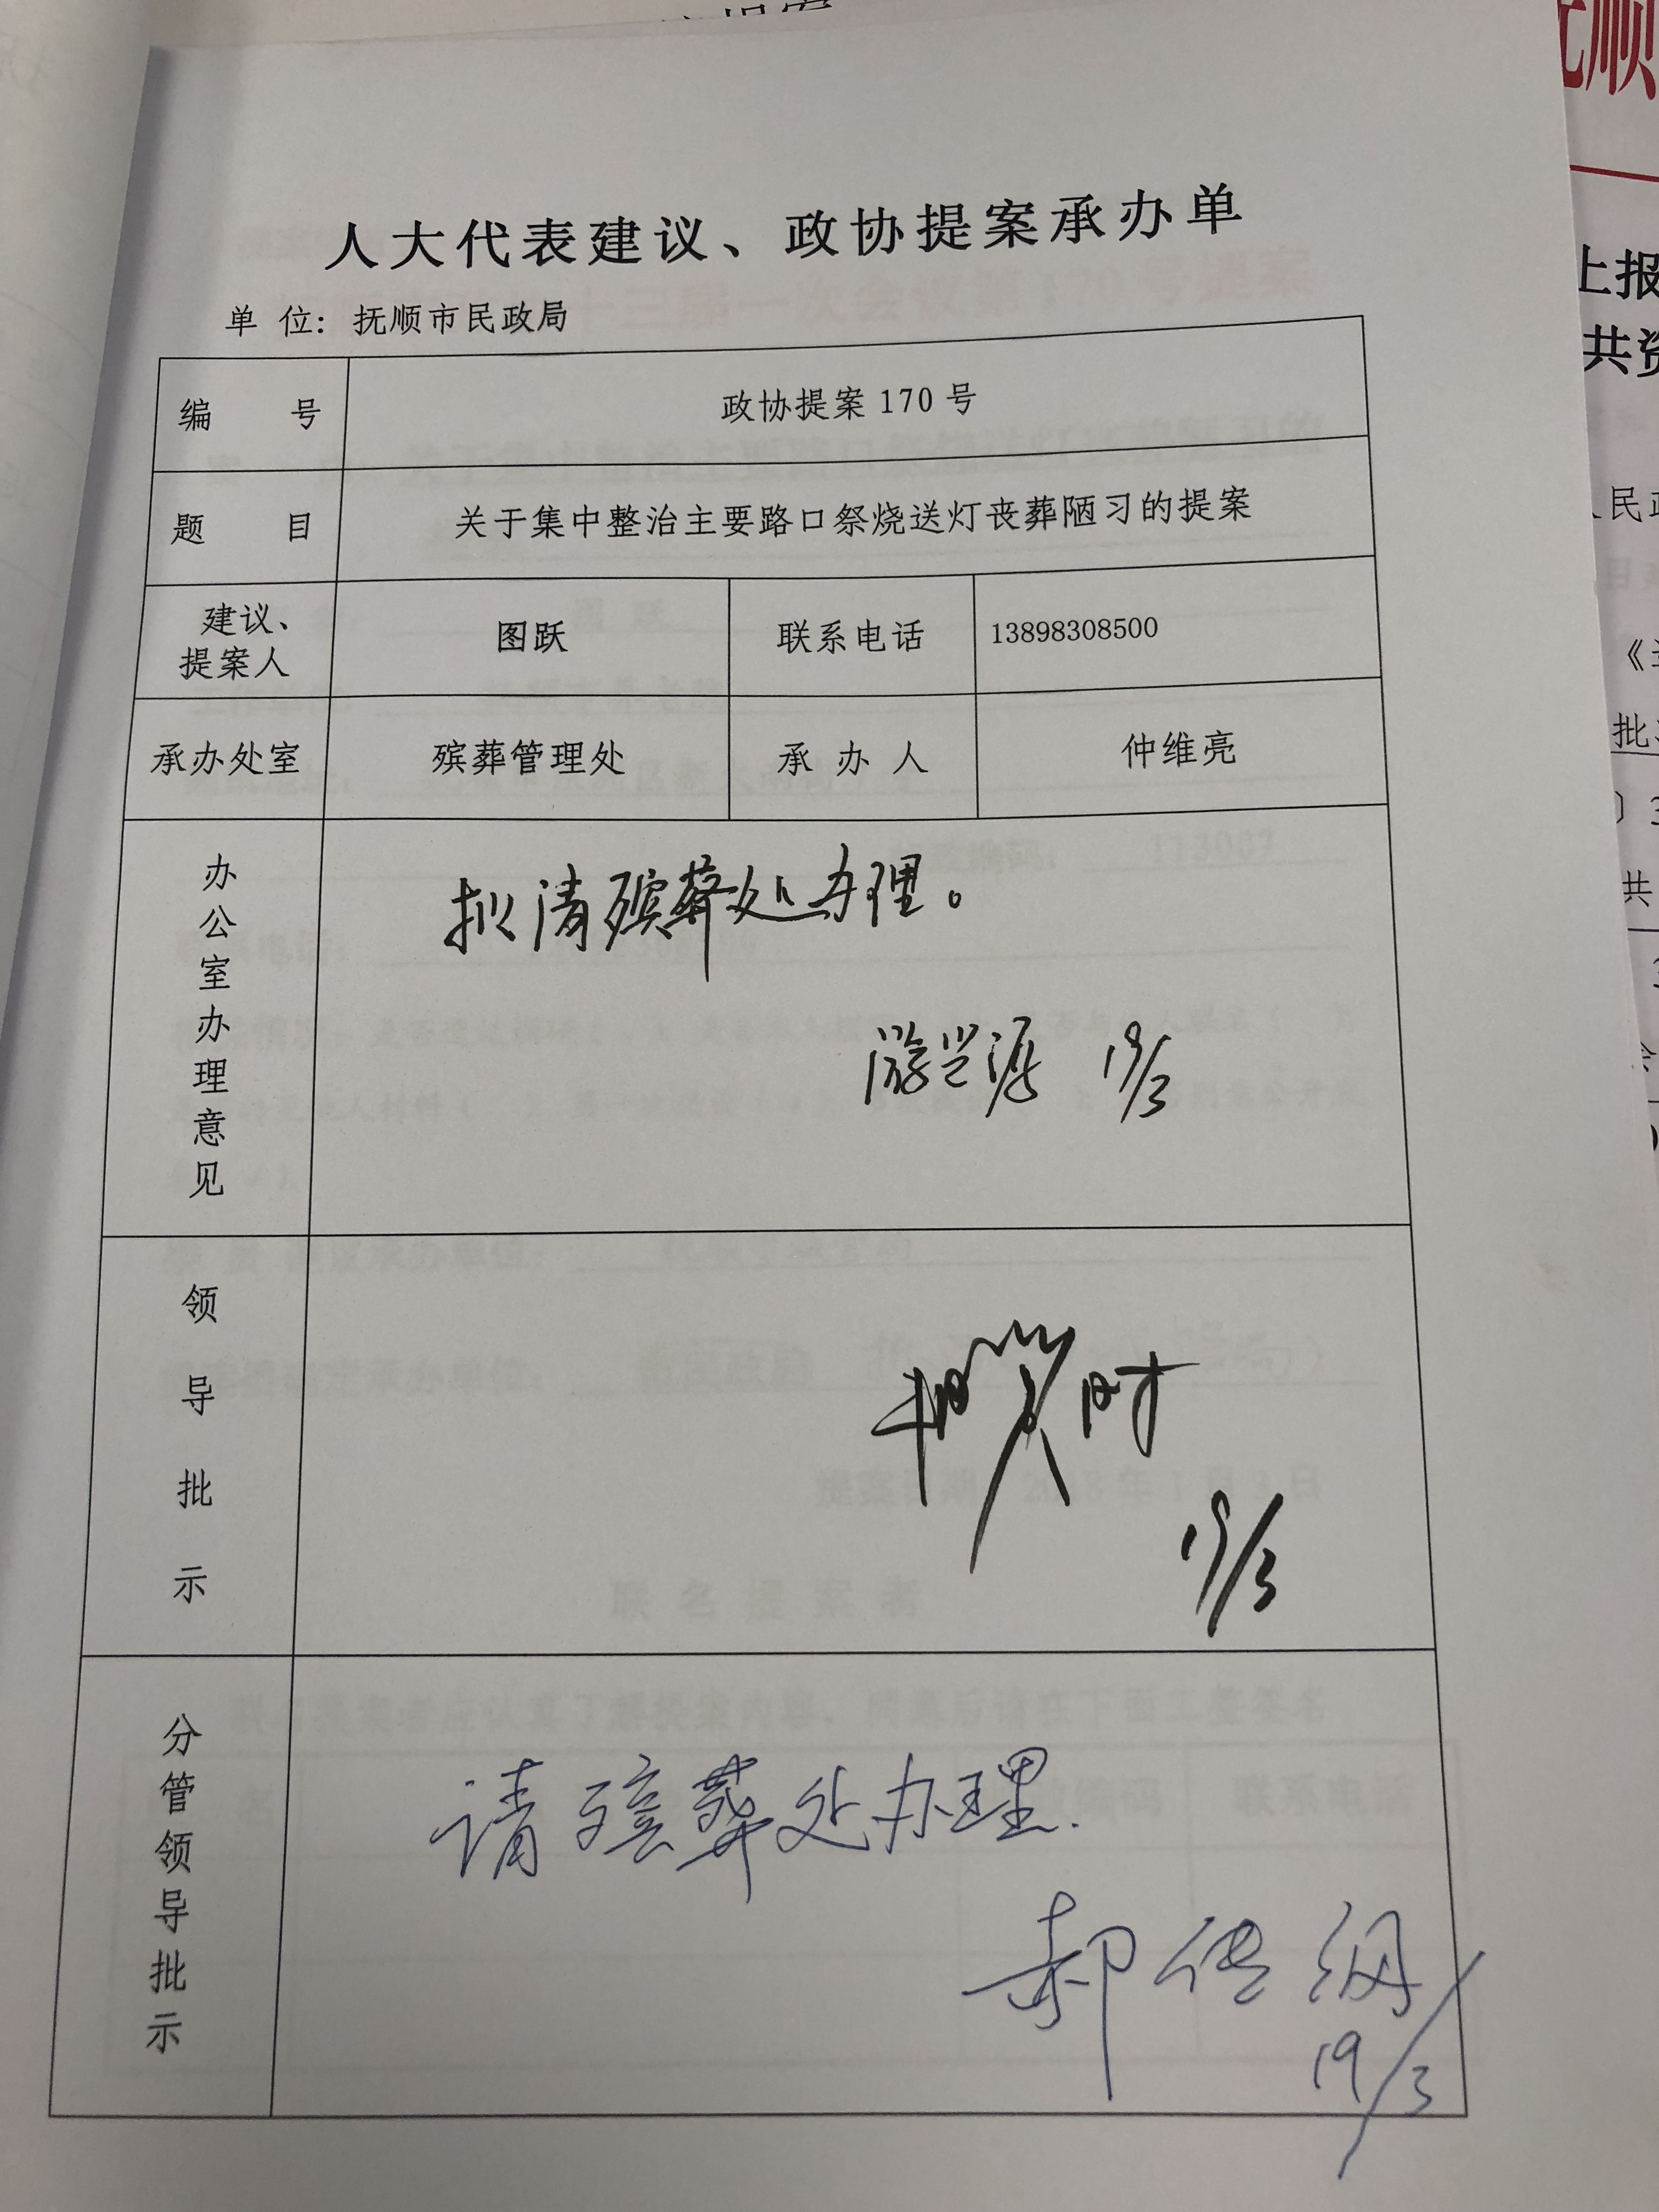 人大代表建议、政协提案承办单
单 位：抚顺市民政局
编 号 政协提案 170 号
题 目 关于集中整治主要路口祭烧送灯丧葬陋习的提案
建议、提案人 图跃 联系电话 13898308500
承办处室 殡葬管理处 承 办 人 仲维亮
办公室办理意见
拟请殡葬处办理。
19/3
领导批示
19/3
分管领导批示
请殡葬处办理.
郝传纲
19/3
抚顺
上报
共资
人民政
批
共